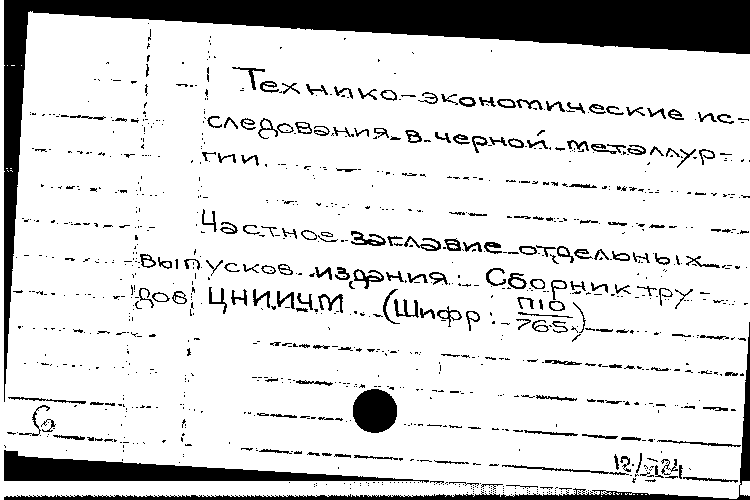 Технико-экономические ис-
следования в черной металлур-
гии.
Частное заглавие отдельных
выпусков издания: Сборник тру-
дов ЦНИИЧМ (Шифр: П10/765)